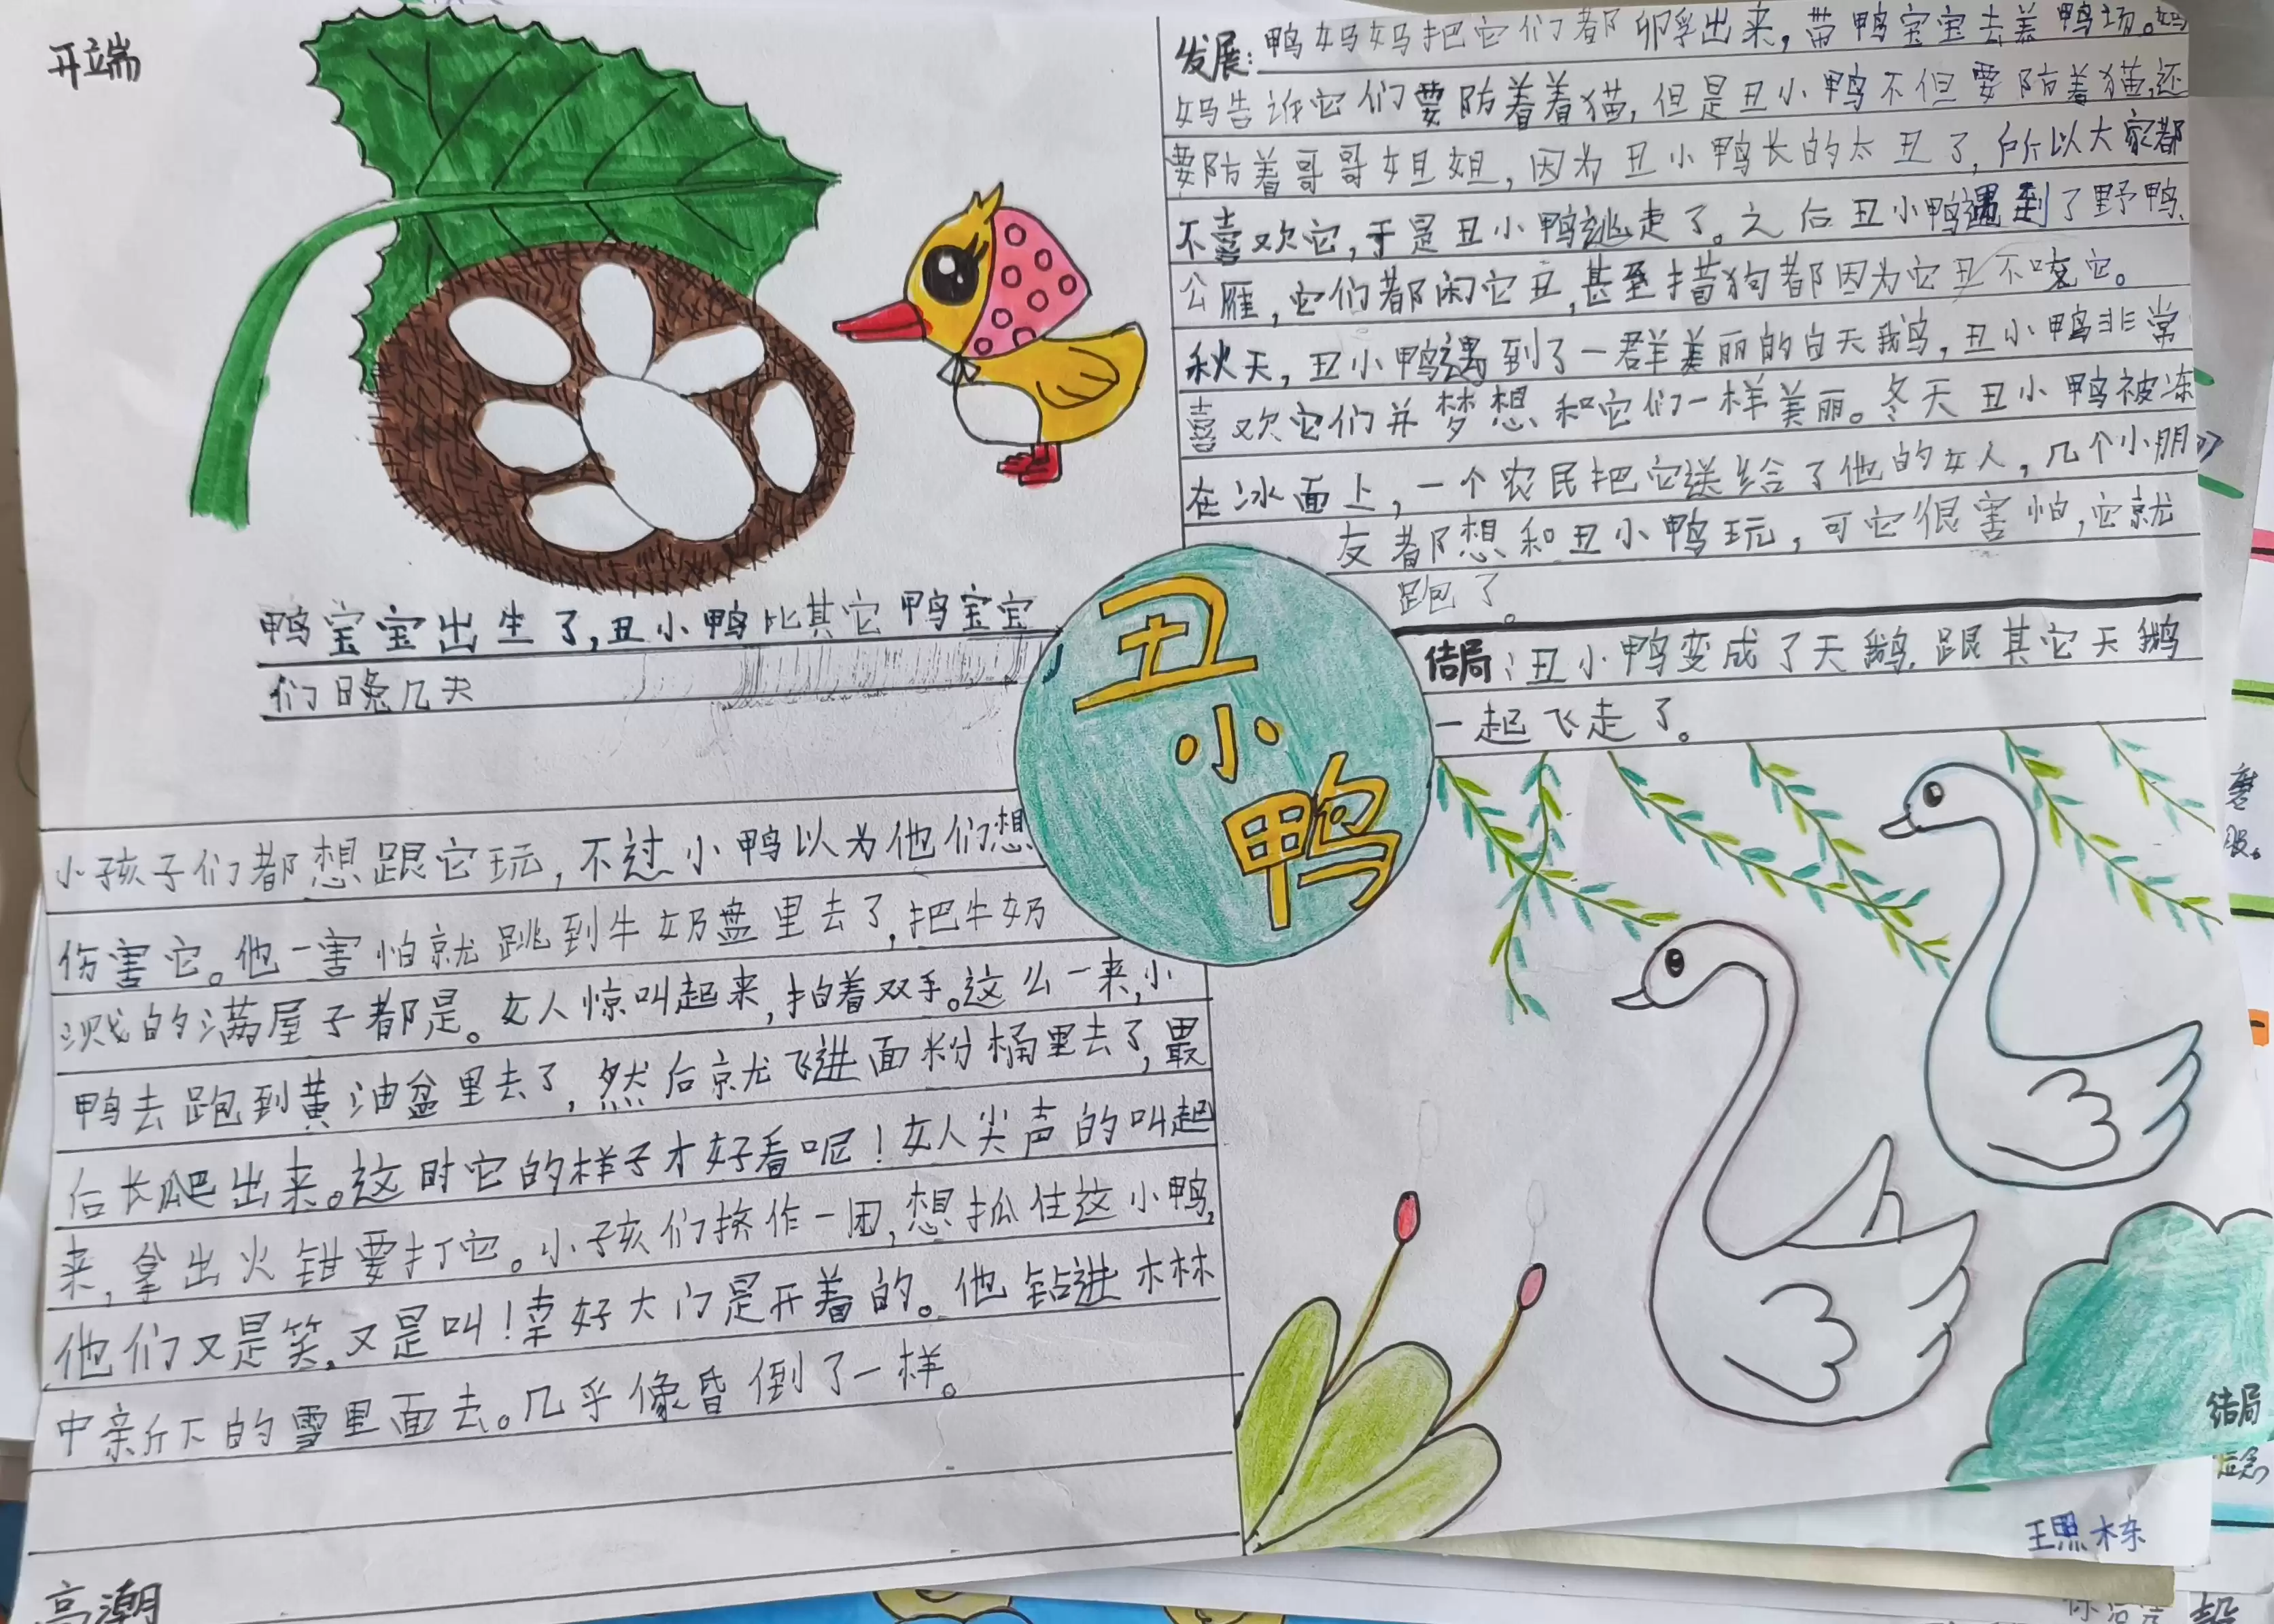 开端
鸭宝宝出生了,丑小鸭比其它鸭宝宝
们晚几天
发展:鸭妈妈把它们都孵出来,带鸭宝宝去养鸭场。妈
妈告诉它们要防着着猫,但是丑小鸭不但要防着猫,还
要防着哥哥姐姐,因为丑小鸭长的太丑了,所以大家都
不喜欢它,于是丑小鸭逃走了。之后丑小鸭遇到了野鸭、
公雁,它们都闲它丑,甚至猎狗都因为它丑不咬它。
秋天,丑小鸭遇到了一群美丽的白天鹅,丑小鸭非常
喜欢它们并梦想和它们一样美丽。冬天丑小鸭被冻
在冰面上,一个农民把它送给了他的女人,几个小朋
友都想和丑小鸭玩,可它很害怕,它就
跑了。
丑小鸭
结局:丑小鸭变成了天鹅,跟其它天鹅
一起飞走了。
小孩子们都想跟它玩,不过小鸭以为他们想
伤害它。他一害怕就跳到牛奶盘里去了,把牛奶
溅的满屋子都是。女人惊叫起来,拍着双手。这么一来,小
鸭去跑到黄油盆里去了,然后就飞进面粉桶里去了,最
后长爬出来。这时它的样子才好看呢!女人尖声的叫起
来,拿出火钳要打它。小孩们挤作一团,想抓住这小鸭,
他们又是笑,又是叫!幸好大门是开着的。他钻进木林
中亲斤下的雪里面去。几乎像昏倒了一样。
高潮
结局
王照栋